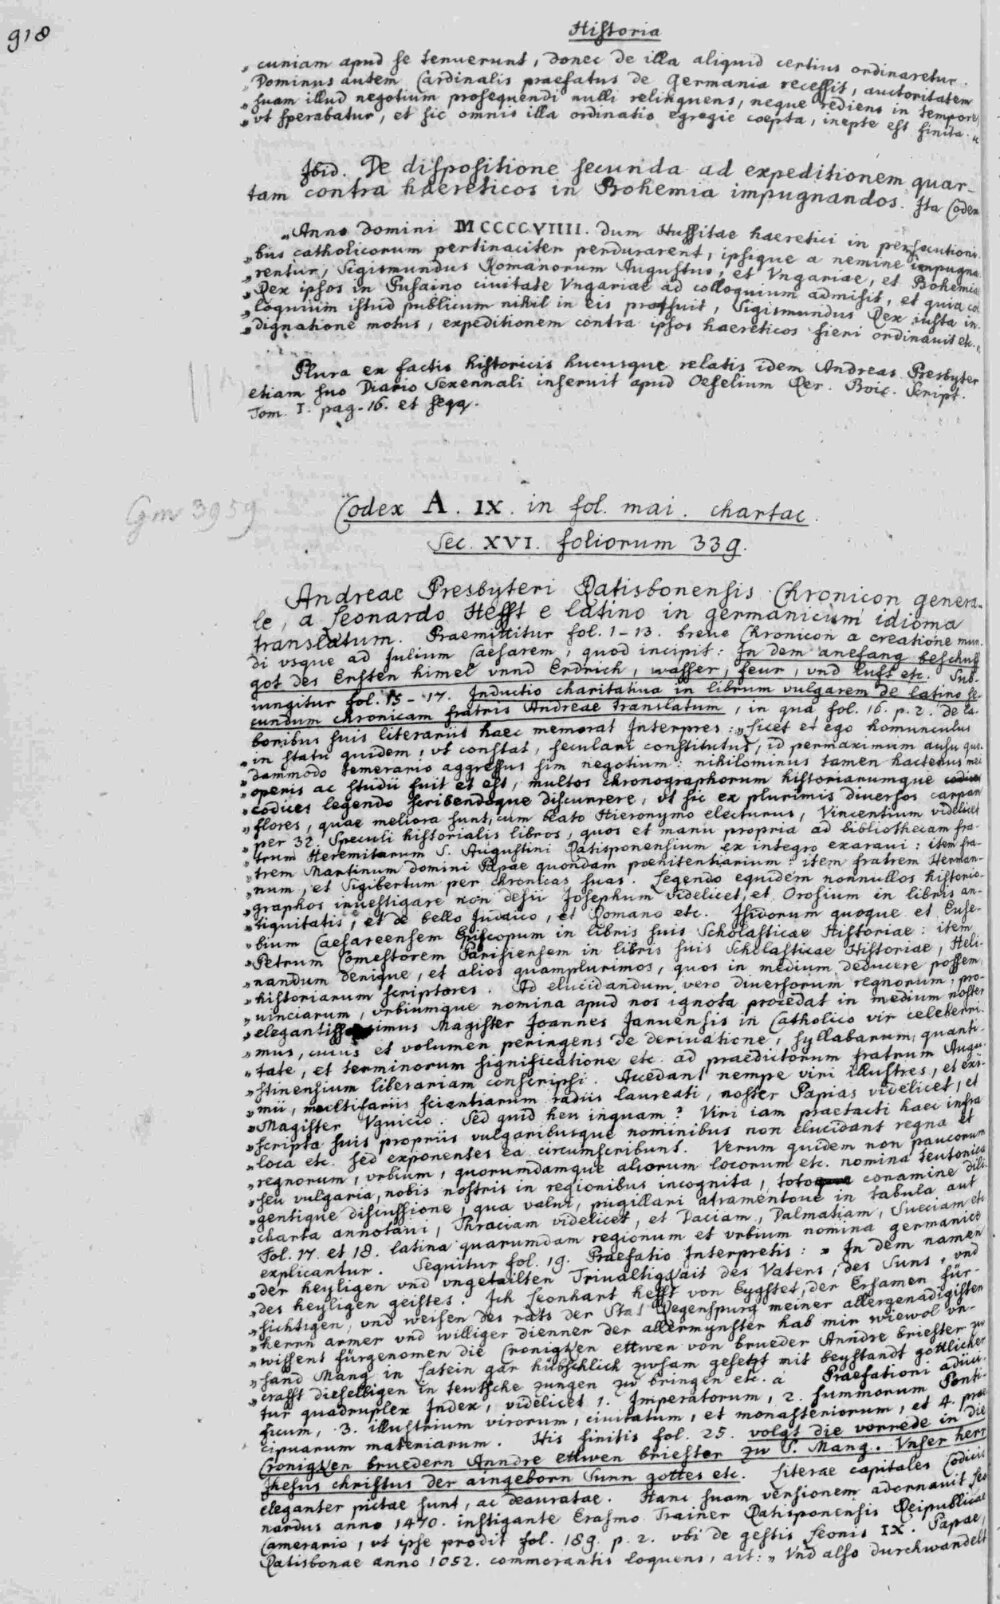 918
Historia
„cuniam apud se tenuerunt, donec de illa aliquid certius ordinaretur.
„Dominus autem Cardinalis praefatus de Germania recessit, auctoritatem
„suam illud negotium prosequendi nulli relinquens, neque rediens in tempore
„vt sperabatur, et sic omnis illa ordinatio egregie coepta, inepte est finita. „
Ibid. De dispositione secunda ad expeditionem quar-
tam contra haereticos in Bohemia impugnandos. Ita Codex
„Anno Domini MCCCCVIIII. dum Hussitae haeretici in persecutioni-
„bus catholicorum pertinaciter perdurarent, ipsique a nemine impugna-
„rentur, Sigismundus Romanorum Augustus, et Vngariae, et Bohemiae
„Rex ipsos in Pusaino ciuitate Vngariae ad colloquium admisit, et quia col-
„loquium istud publicum nihil in eis profuit, Sigismundus Rex iusta in-
„dignatione motus, expeditionem contra ipsos haereticos fieri ordinauit etc. „
Plura ex factis historicis hucusque relatis idem Andreas Presbyter
etiam suo Diario Sexennali inseruit apud Oefelium Rer. Boic. Script.
Tom I. pag. 16. et seqq.
Cgm 3959
Codex A. IX. in fol. mai. chartac.
Sec. XVI. foliorum 339.
Andreae Presbyteri Ratisbonensis Chronicon genera-
le, a Leonardo Hefft e latino in germanicum idioma
translatum. Praemittitur fol. 1-13. breue Chronicon a creatione mun-
di vsque ad Julium Caesarem, quod incipit: In dem anefang beschuff
got des Ersten himel vnnd Erdrich, wasser, feur, vnd luft etc. Sub-
iungitur fol. 15-17. Inductio charitatiua in librum vulgarem de latino se-
cundum chronicam fratris Andreae translatum, in qua fol. 16. p. 2. de la-
boribus suis literariis haec memorat Interpres: „ licet et ego homunculus
„in statu quidem, vt constat, seculari constitutus, id permaximum ausu quo-
„dammodo temerario aggressus sim negotium: nihilominus tamen hactenus mei
„operis ac studii fuit et est, multos chronographorum historiarumque
„codices legendo scribendoque discurrere, vt sic ex plurimis diuersos carpam
„flores, quae meliora sunt, cum beato Hieronymo electurus, Vincentium videlicet
„per 32. Speculi historialis libros, quos et manu propria ad bibliothecam fra-
„trum Heremitarum S. Augustini Ratisponensium ex integro exaraui: item fra-
„trem Martinum domini Papae quondam poenitentiarium: item fratrem Herman-
„num, et Sigibertum per chronicas suas. Legendo equidem nonnullos historio-
„graphos inuestigare non desii Josephum videlicet, et Orosium in libris an-
„tiquitatis, et de bello Judaico, et Romano etc. Isidorum quoque et Euse-
„bium Caesareensem Episcopum in libris suis Scholasticae Historiae: item
„Petrum Comestorem Parisiensem in libris suis Scholasticae Historiae, Heli-
„nandum denique, et alios quamplurimos, quos in medium deducere possem
„historiarum scriptores. Ad elucidandum vero diuersorum regnorum, pro-
„uinciarum, vrbiumque nomina apud nos ignota procedat in medium noster
„elegantissimus Magister Joannes Januensis in Catholico vir celeberri-
„mus, cuius et volumen peringens de deriuatione, syllabarum, quanti-
„tate, et terminorum significatione etc. ad praedictorum fratrum Augu-
„stinensium librariam conscripsi. Accedant nempe viri illustres, et exi-
„mii, multifariis scientiarum radiis laureati, noster Papias videlicet, et
„Magister Vguicio. Sed quid heu inquam? Viri iam praetacti haec infra
„scripta suis propriis vulgaribusque nominibus non elucidant regna et
„loca etc. sed exponentes ea circumscribunt. Verum quidem non paucorum
„regnorum, vrbium, quorumdamque aliorum locorum etc. nomina teutonica
„seu vulgaria, nobis nostris in regionibus incognita, toto conamine dili-
„gentique discussione, qua valui, pugillari atramentoue in tabula aut
„charta annotaui, Thraciam videlicet, et Daciam, Dalmatiam, Sueciam etc
Fol. 17. et 18. latina quarumdam regionum et vrbium nomina germanice
explicantur. Sequitur fol. 19. Praefatio Interpretis: „ In dem namen
„der heyligen vnd vngetailten Triualtigkait des Vaters, des Suns, vnd
„des heyligen geistes. Ich Leonhart hefft von Eygstet, der Ersamen für-
„sichtigen, vnd weisen des rats der Stat Regenspurg meiner allergenadigisten
„herrn armer vnd williger dienner der allermynster hab mir wiewol vn-
„wissent fürgenomen die Cronigken ettwen von brueder Anndre briester zu
„sand Mang in latein gar hübschlich zwsam gesetzt mit beystandt gotlicher
„crafft dieselbigen in teutsche zungen zw bringen etc. „ Praefationi adiici-
tur quadruplex Index, videlicet 1. Imperatorum, 2. summorum Ponti-
ficum, 3. illustrium virorum, ciuitatum, et monasteriorum, et 4. prae-
cipuarum materiarum. His finitis fol. 25. volgt die vorrede in die
Cronigken bruedern Anndre ettwen briester zw S. Mang. Vnser herr
Jhesus christus der aingeborn Sunn gottes etc. Literae capitales Codicis
eleganter pictae sunt, ac deauratae. Hanc suam versionem adornauit Leo-
nardus anno 1470. instigante Erasmo Trainer Ratisponensis Reipublicae
Camerario, vt ipse prodit fol. 189. p. 2. vbi de gestis Leonis IX. Papae,
Ratisbonae anno 1052. commorantis loquens, ait: „ Vnd also durchwandelt